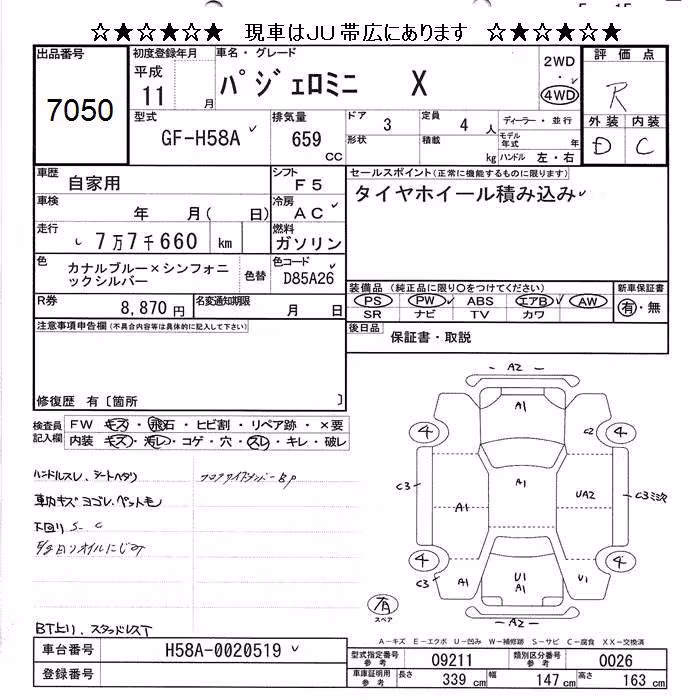 ☆★☆★☆★ 現車はJU帯広にあります ☆★☆★☆★
出品番号
7050
初度登録年月
平成
11 月
車名・グレード
パジェロミニ X
2WD
・
4WD
評価点
R
型式
GF-H58A
排気量
659
cc
ドア 3
定員 4 人
形状
積載 kg
ディーラー・並行
モデル年式 年
ハンドル 左・右
外装 内装
D C
車歴 自家用
シフト F5
車検 年 月( 日)
冷房 AC
走行 7万7千660 km
燃料 ガソリン
色 カナルブルー×シンフォニ
ックシルバー 色替
色コード D85A26
R券 8,870円
名変通知期限 月 日
セールスポイント(正常に機能するものに限ります)
タイヤホイール積み込み
装備品(純正品に限り○をつけてください)
PS PW ABS エアB AW
SR ナビ TV カワ
新車保証書
有・無
後日品 保証書・取説
注意事項申告欄(不具合内容等は具体的に記入して下さい)
修復歴 有〔箇所 〕
検査員
記入欄
FW キズ・飛石・ヒビ割・リペア跡・×要
内装 キズ・汚レ・コゲ・穴・スレ・キレ・破レ
ハンドルスレ、シートヘタリ
車内キズ ヨゴレ、ペットモ
下回り S- C
BT上り、スタッドレスT
A2
A1
4
C2
4
C3
A1
A1
UA2
C3
4
4
C3
A1
U1
A1
U1
A2
有
スペア
A-キズ E-エクボ U-凹み W-補修跡 S-サビ C-腐食 XX-交換済
車台番号 H58A-0020519
登録番号
型式指定番号
参考
09211
類別区分番号
参考
0026
車庫証明用
参考
長さ 339 cm 幅 147 cm 高さ 163 cm